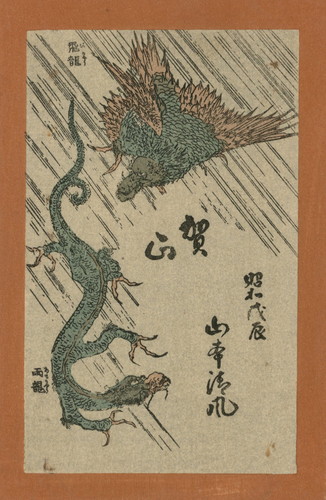 飛龍
賀正
昭和戊辰
山本清風
雨龍